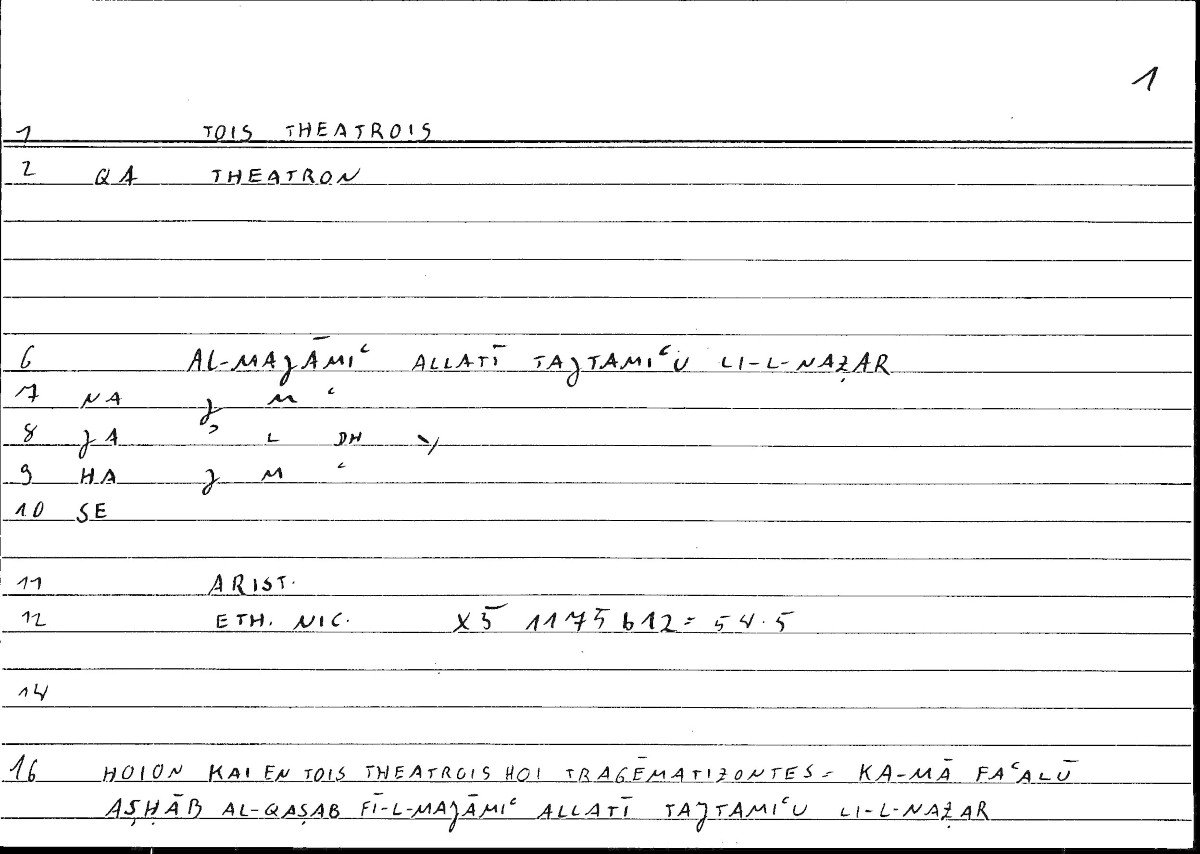 1
1 TOIS THEATROIS
2 QA THEATRON
6 AL-MAJĀMIʿ ALLATĪ TAJTAMIʿU LI-L-NAẒAR
7 NA J M ʿ
8 JA ʾ L DH Y
9 HA J M ʿ
10 SE
11 ARIST.
12 ETH. NIC. X5 1175b12 = 54.5
14
16 HOION KAI EN TOIS THEATROIS HOI TRAGĒMATIZONTES = KA-MĀ FAʿALŪ
AṢḤĀB AL-QAṢAB FĪ-L-MAJĀMIʿ ALLATĪ TAJTAMIʿU LI-L-NAẒAR